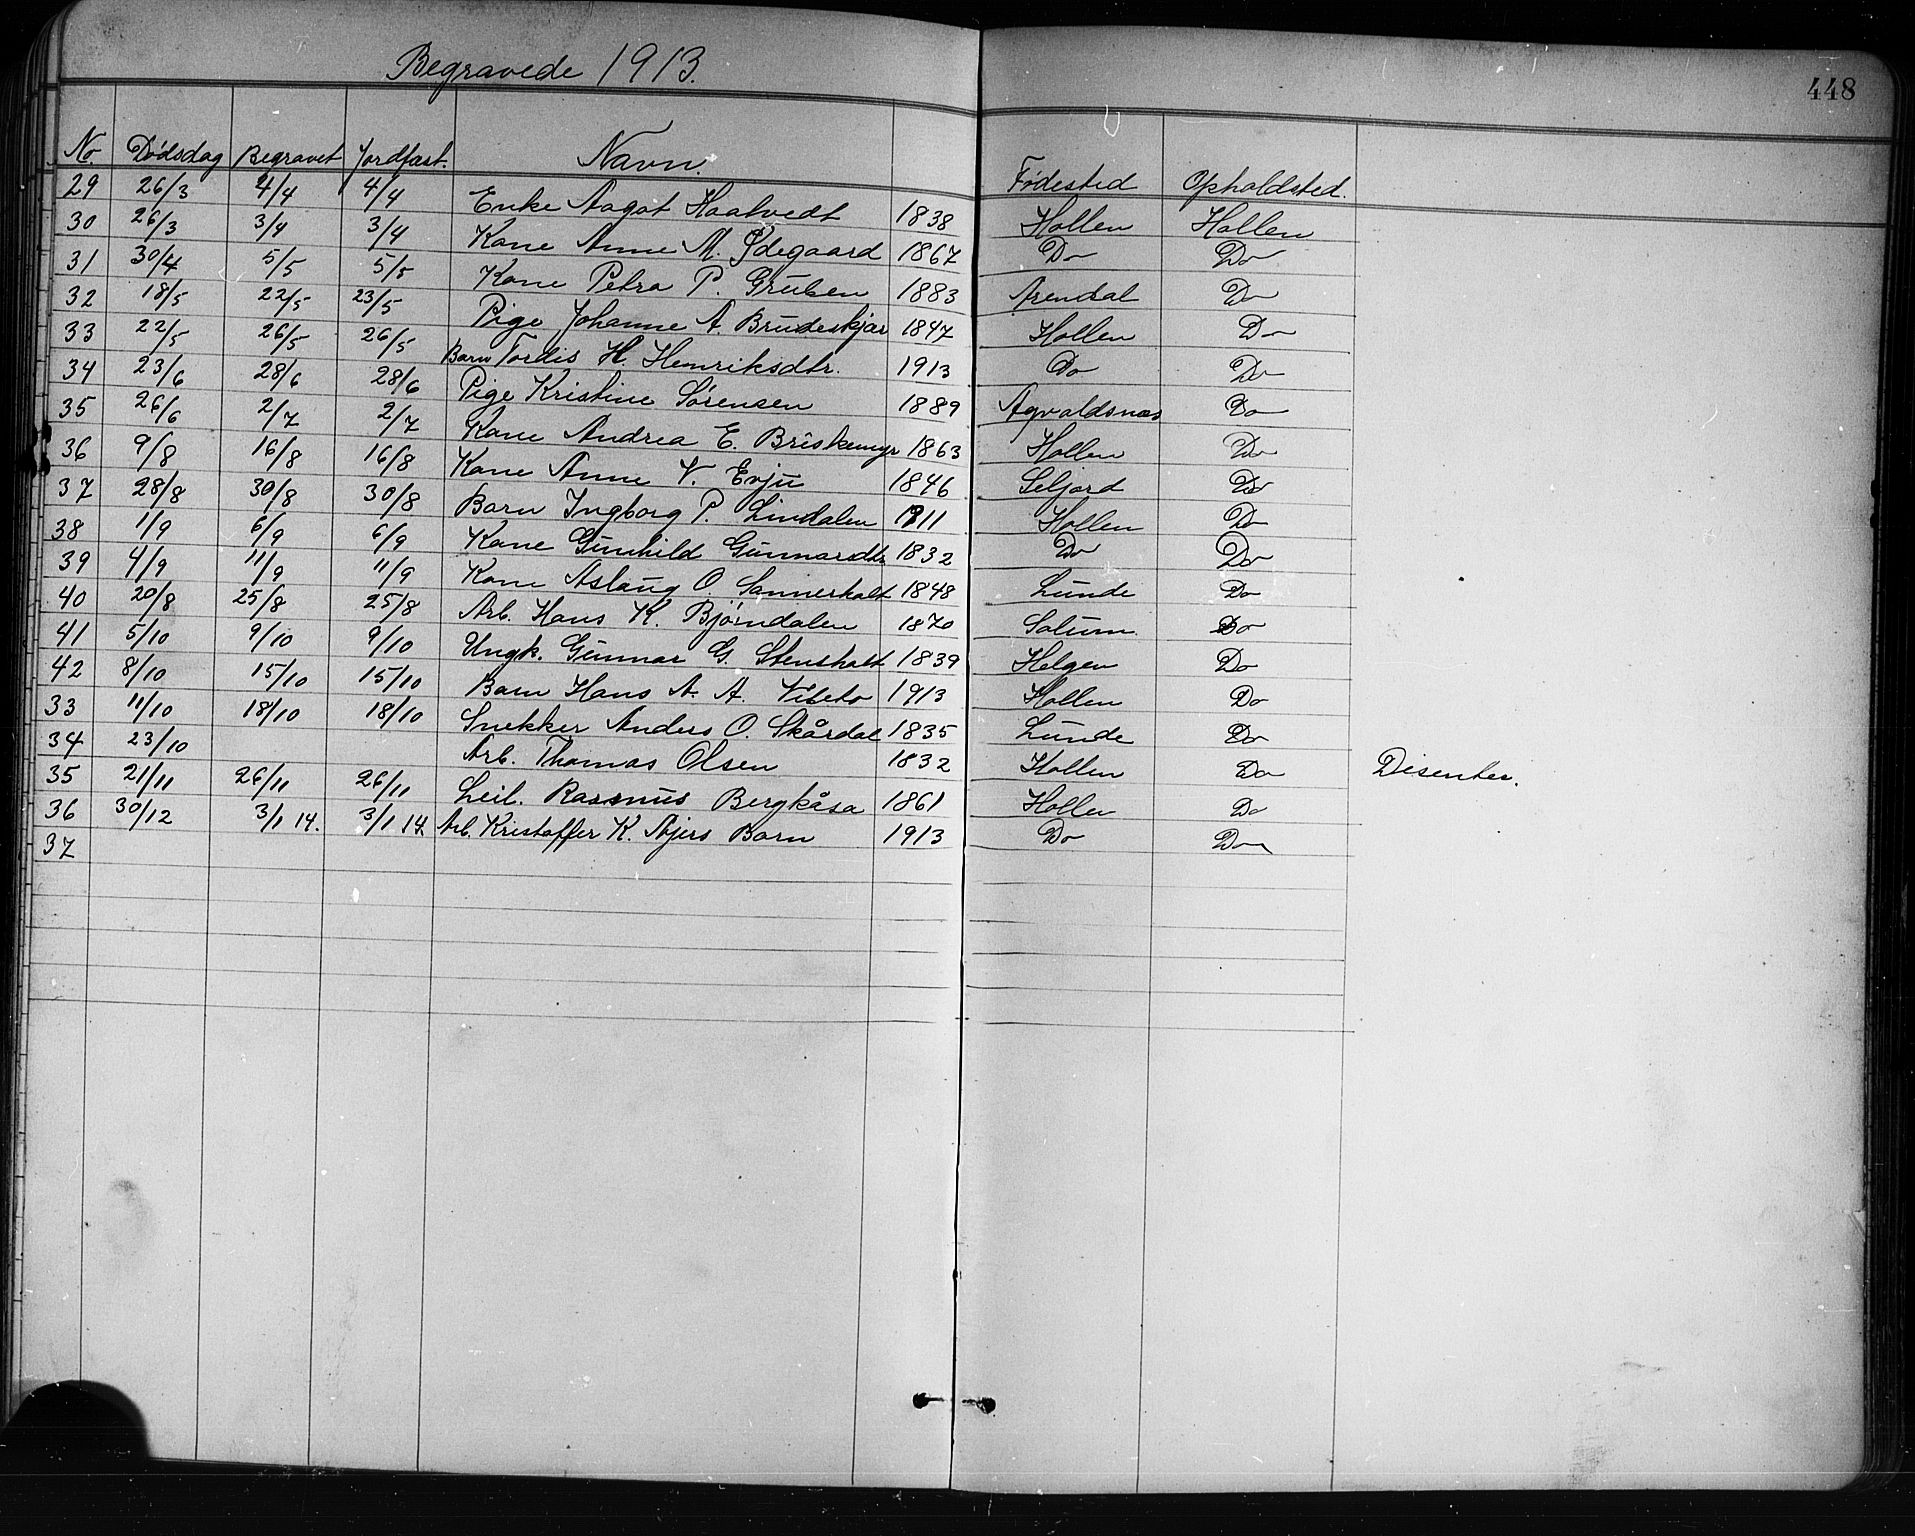 Begravede 1913.
448
No. Dødsdag Begravet Jordfæst. Navn. Fødested Opholdsted.
29 26/3 4/4 4/4 Enke Aagot Haatvedt 1838 Hollen Hollen
30 26/3 3/4 3/4 Kone Anne M. Ødegaard 1867 Do Do
31 30/4 5/5 5/5 Kone Petra P. Gruben 1883 Arendal Do
32 18/5 22/5 23/5 Pige Johanne A. Brudeskjær 1847 Hollen Do
33 22/5 26/5 26/5 Barn Tordis H. Henriksdtr. 1913 Do Do
34 23/6 28/6 28/6 Pige Kristine Sørensen 1889 Agvaldsnæs Do
35 26/6 2/7 2/7 Kone Andrea E. Briskemyr 1863 Hollen Do
36 9/8 16/8 16/8 Kone Anne V. Evju 1846 Seljord Do
37 28/8 30/8 30/8 Barn Ingborg P. Lindalen 1911 Hollen Do
38 1/9 6/9 6/9 Kone Gunhild Gunnardtr 1832 Do Do
39 4/9 11/9 11/9 Kone Aslaug O. Sannerholt 1848 Lunde Do
40 20/8 25/8 25/8 Arb. Hans K. Bjørndalen 1870 Solum Do
41 5/10 9/10 9/10 Ungk. Gunnar G. Stensholt 1839 Helgen Do
42 8/10 15/10 15/10 Barn Hans A. A. Vibeto 1913 Hollen Do
33 11/10 18/10 18/10 Snekker Anders O. Skårdal 1835 Lunde Do
34 23/10 Arb. Thomas Olsen 1832 Hollen Do Disenter.
35 21/11 26/11 26/11 Leil. Rasmus Bergkåsa 1861 Hollen Do
36 30/12 3/1 14. 3/1 14 Arb. Kristoffer K. Ajers Barn 1913 Do Do
37